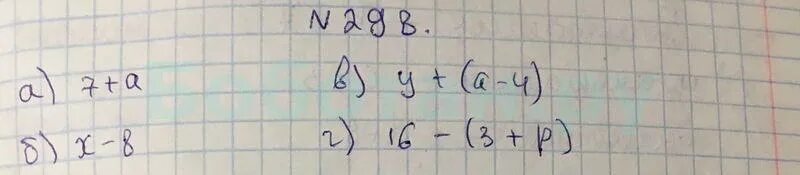 N 298.
а) 7+a
б) x-8
в) y + (a-4)
г) 16 - (3 + p)